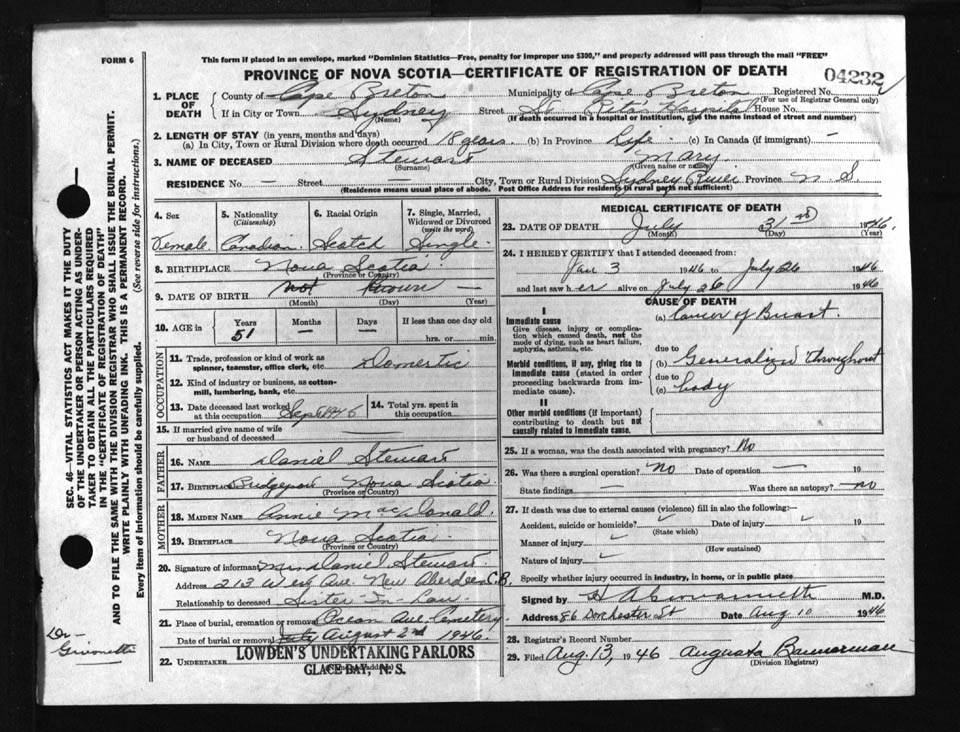 FORM 6
This form if placed in an envelope, marked "Dominion Statistics—Free, penalty for improper use $300," and properly addressed will pass through the mail "FREE"
PROVINCE OF NOVA SCOTIA—CERTIFICATE OF REGISTRATION OF DEATH
04232
1. PLACE OF DEATH
County of Cape Breton Municipality of Cape Breton Registered No.
(For use of Registrar General only)
If in City or Town Sydney Street St Rita's Hospital House No.
(Name) (If death occurred in a hospital or institution, give the name instead of street and number)
2. LENGTH OF STAY (in years, months and days)
(a) In City, Town or Rural Division where death occurred 18 years. (b) In Province Life (c) In Canada (if immigrant) —
3. NAME OF DECEASED Stewart Mary
(Surname) (Given name or names)
RESIDENCE No — Street City, Town or Rural Division Sydney River Province N. S
(Residence means usual place of abode. Post Office Address for residents in rural parts not sufficient)
4. Sex
Female
5. Nationality
(Citizenship)
Canadian
6. Racial Origin
Scotch
7. Single, Married, Widowed or Divorced
(write the word)
Single
8. BIRTHPLACE Nova Scotia
(Province or Country)
9. DATE OF BIRTH Not Known —
(Month) (Day) (Year)
10. AGE in Years 51 Months — Days — If less than one day old
hrs. or min.
OCCUPATION
11. Trade, profession or kind of work as spinner, teamster, office clerk, etc. Domestic
12. Kind of industry or business, as cotton-mill, lumbering, bank, etc.
13. Date deceased last worked at this occupation Sept 1946
14. Total yrs. spent in this occupation
15. If married give name of wife or husband of deceased
FATHER
16. NAME Daniel Stewart
17. BIRTHPLACE Bridgeport Nova Scotia
(Province or Country)
MOTHER
18. MAIDEN NAME Annie MacDonald.
19. BIRTHPLACE Nova Scotia
(Province or Country)
20. Signature of informant Mrs Daniel Stewart
Address 213 West Ave. New Aberdeen C.B.
Relationship to deceased Sister-In-Law
21. Place of burial, cremation or removal Ocean Ave. Cemetery
Date of burial or removal July August 2nd 1946.
22. UNDERTAKER LOWDEN'S UNDERTAKING PARLORS
(Name and address)
GLACE BAY, N. S.
MEDICAL CERTIFICATE OF DEATH
23. DATE OF DEATH July 31 1946.
(Month) (Day) (Year)
24. I HEREBY CERTIFY that I attended deceased from:
Jan 3 1946 to July 26 1946
and last saw h er alive on July 26 1946
CAUSE OF DEATH
I
Immediate cause
Give disease, injury or complication which caused death, not the mode of dying, such as heart failure, asphyxia, asthenia, etc.
(a) Cancer of Breast.
due to
Morbid conditions, if any, giving rise to immediate cause (stated in order proceeding backwards from immediate cause).
(b) Generalized throughout
due to
(c) body
II
Other morbid conditions (if important) contributing to death but not causally related to immediate cause.
25. If a woman, was the death associated with pregnancy? No
26. Was there a surgical operation? No Date of operation — 19
State findings — Was there an autopsy? no
27. If death was due to external causes (violence) fill in also the following:—
Accident, suicide or homicide? Date of injury 19
(State which)
Manner of injury
(How sustained)
Nature of injury
Specify whether injury occurred in industry, in home, or in public place
Signed by M.D.
Address 86 Dorchester St Date Aug 10 1946
28. Registrar's Record Number
29. Filed Aug. 13, 1946 Augusta Bannerman
(Division Registrar)
SEC. 46—VITAL STATISTICS ACT MAKES IT THE DUTY OF THE UNDERTAKER OR PERSON ACTING AS UNDERTAKER TO OBTAIN ALL THE PARTICULARS REQUIRED IN THE "CERTIFICATE OF REGISTRATION OF DEATH" AND TO FILE THE SAME WITH THE DIVISION REGISTRAR WHO SHALL ISSUE THE BURIAL PERMIT.
WRITE PLAINLY WITH UNFADING INK. THIS IS A PERMANENT RECORD.
Every item of information should be carefully supplied. (See reverse side for instructions.)
Dr—